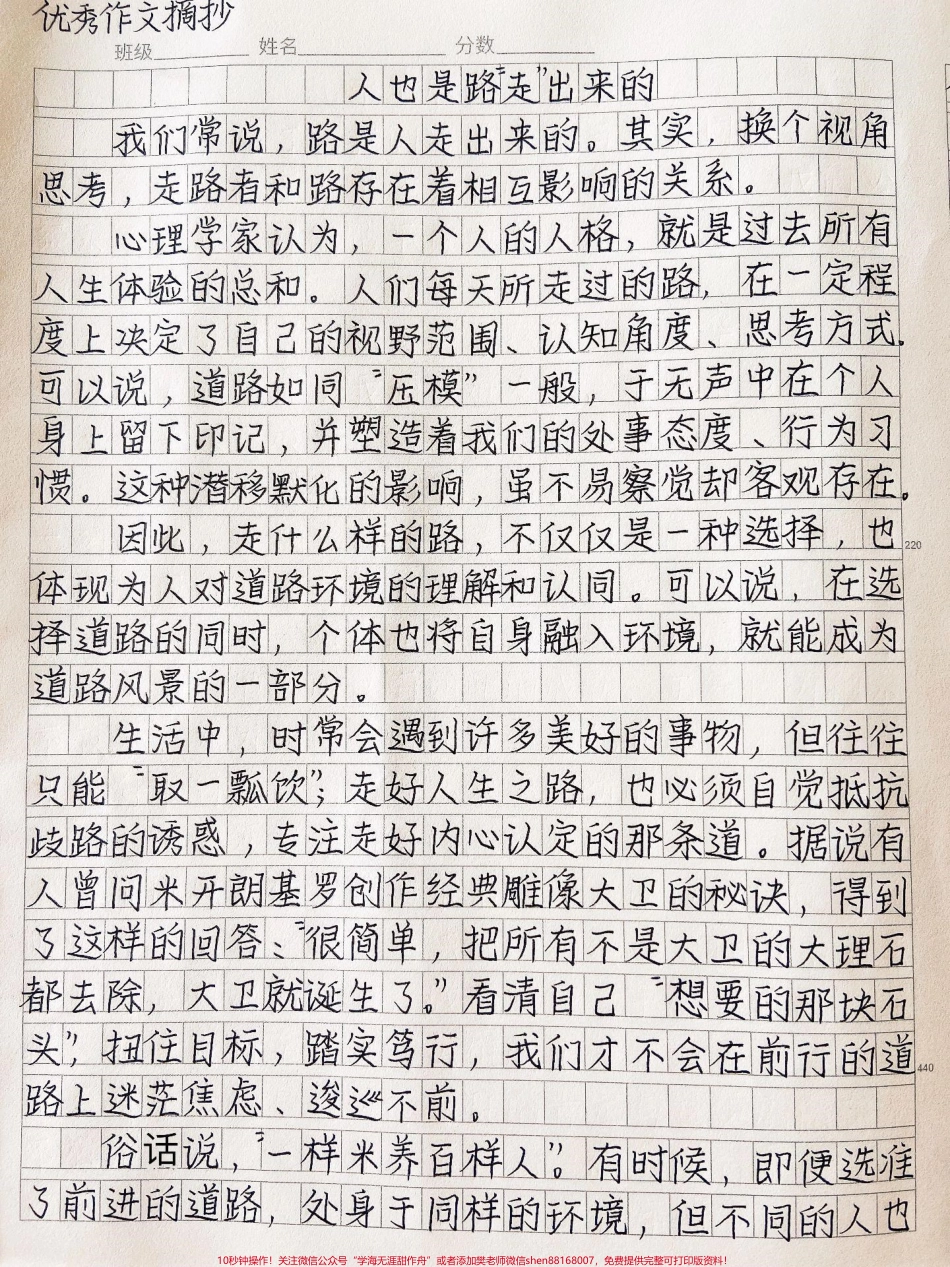 优秀作文摘抄
班级 姓名 分数
人也是路“走”出来的
我们常说，路是人走出来的。其实，换个视角
思考，走路者和路存在着相互影响的关系。
心理学家认为，一个人的人格，就是过去所有
人生体验的总和。人们每天所走过的路，在一定程
度上决定了自己的视野范围、认知角度、思考方式.
可以说，道路如同“压模”一般，于无声中在个人
身上留下印记，并塑造着我们的处事态度、行为习
惯。这种潜移默化的影响，虽不易察觉却客观存在。
因此，走什么样的路，不仅仅是一种选择，也
220
体现为人对道路环境的理解和认同。可以说，在选
择道路的同时，个体也将自身融入环境，就能成为
道路风景的一部分。
生活中，时常会遇到许多美好的事物，但往往
只能“取一瓢饮”；走好人生之路，也必须自觉抵抗
歧路的诱惑，专注走好内心认定的那条道。据说有
人曾问米开朗基罗创作经典雕像大卫的秘诀，得到
了这样的回答：“很简单，把所有不是大卫的大理石
都去除，大卫就诞生了。”看清自己“想要的那块石
头”，扭住目标，踏实笃行，我们才不会在前行的道
440
路上迷茫焦虑、逡巡不前。
俗话说，“一样米养百样人”。有时候，即便选准
了前进的道路，处身于同样的环境，但不同的人也
10秒钟操作！关注微信公众号“学海无涯甜作舟”或者添加樊老师微信shen88168007，免费提供完整可打印版资料！